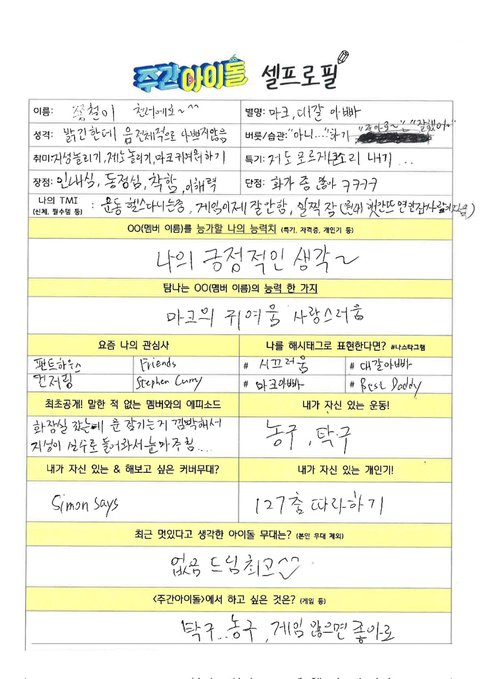 주간아이돌 셀프로필
이름: 정천이 천러에로~^^
별명: 마크, 대갈 아빠
성격: 밝긴한데 음 전체적으로 나쁘지않음
버릇/습관: "아니..."하기 "좋아요~"는 "잘했어~"
취미: 지성놀리기, 제노놀리기, 마크귀여워하기
특기: 저도 모르게 소리 내기...
장점: 인내심, 동정심, 착함, 이해력
단점: 화가 좀 많아 ㅋㅋㅋㅋ
나의 TMI
(신체, 월수명 등)
: 운동 헬스다니는중, 게임이제 잘안함, 일찍 잠
OO(멤버 이름)를 능가할 나의 능력치 (특기, 자격증, 개인기 등)
나의 긍정적인 생각~
탐나는 OO(멤버 이름)의 능력 한 가지
마크의 귀여움 사랑스러움
요즘 나의 관심사
나를 해시태그로 표현한다면? #나스타그램
펜트하우스
Friends
# 시끄러움
# 대갈아빠
컨저링
Stephen Curry
# 마크아빠
# Best Daddy
최초공개! 말한 적 없는 멤버와의 에피소드
내가 자신 있는 운동!
화장실 갔는데 문 잠기는거 깜빡해서
지성이 실수로 들어와서 눈마주침...
농구, 탁구
내가 자신 있는 & 해보고 싶은 커버무대?
내가 자신 있는 개인기!
Simon says
127춤 따라하기
최근 멋있다고 생각한 아이돌 무대는? (본인 무대 제외)
없음 드림최고^^
<주간아이돌>에서 하고 싶은 것은? (게임 등)
탁구.. 농구, 게임 않으면 좋아요